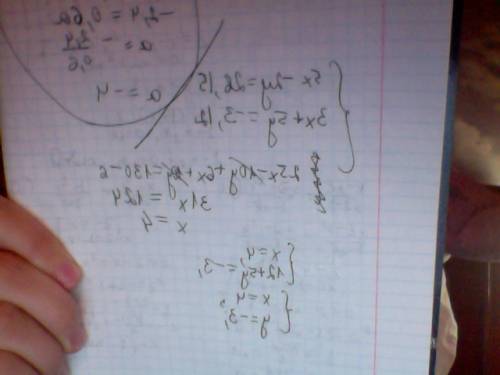 -2,4 = 0,6a
a = - 2,4/0,6
a = -4
{ 5x-2y=26, |5
3x+5y=-3, |2
25x-10y+6x+10y=130-6
31x=124
x=4
{ x=4,
12+5y=-3,
{ x=4,
y=-3,